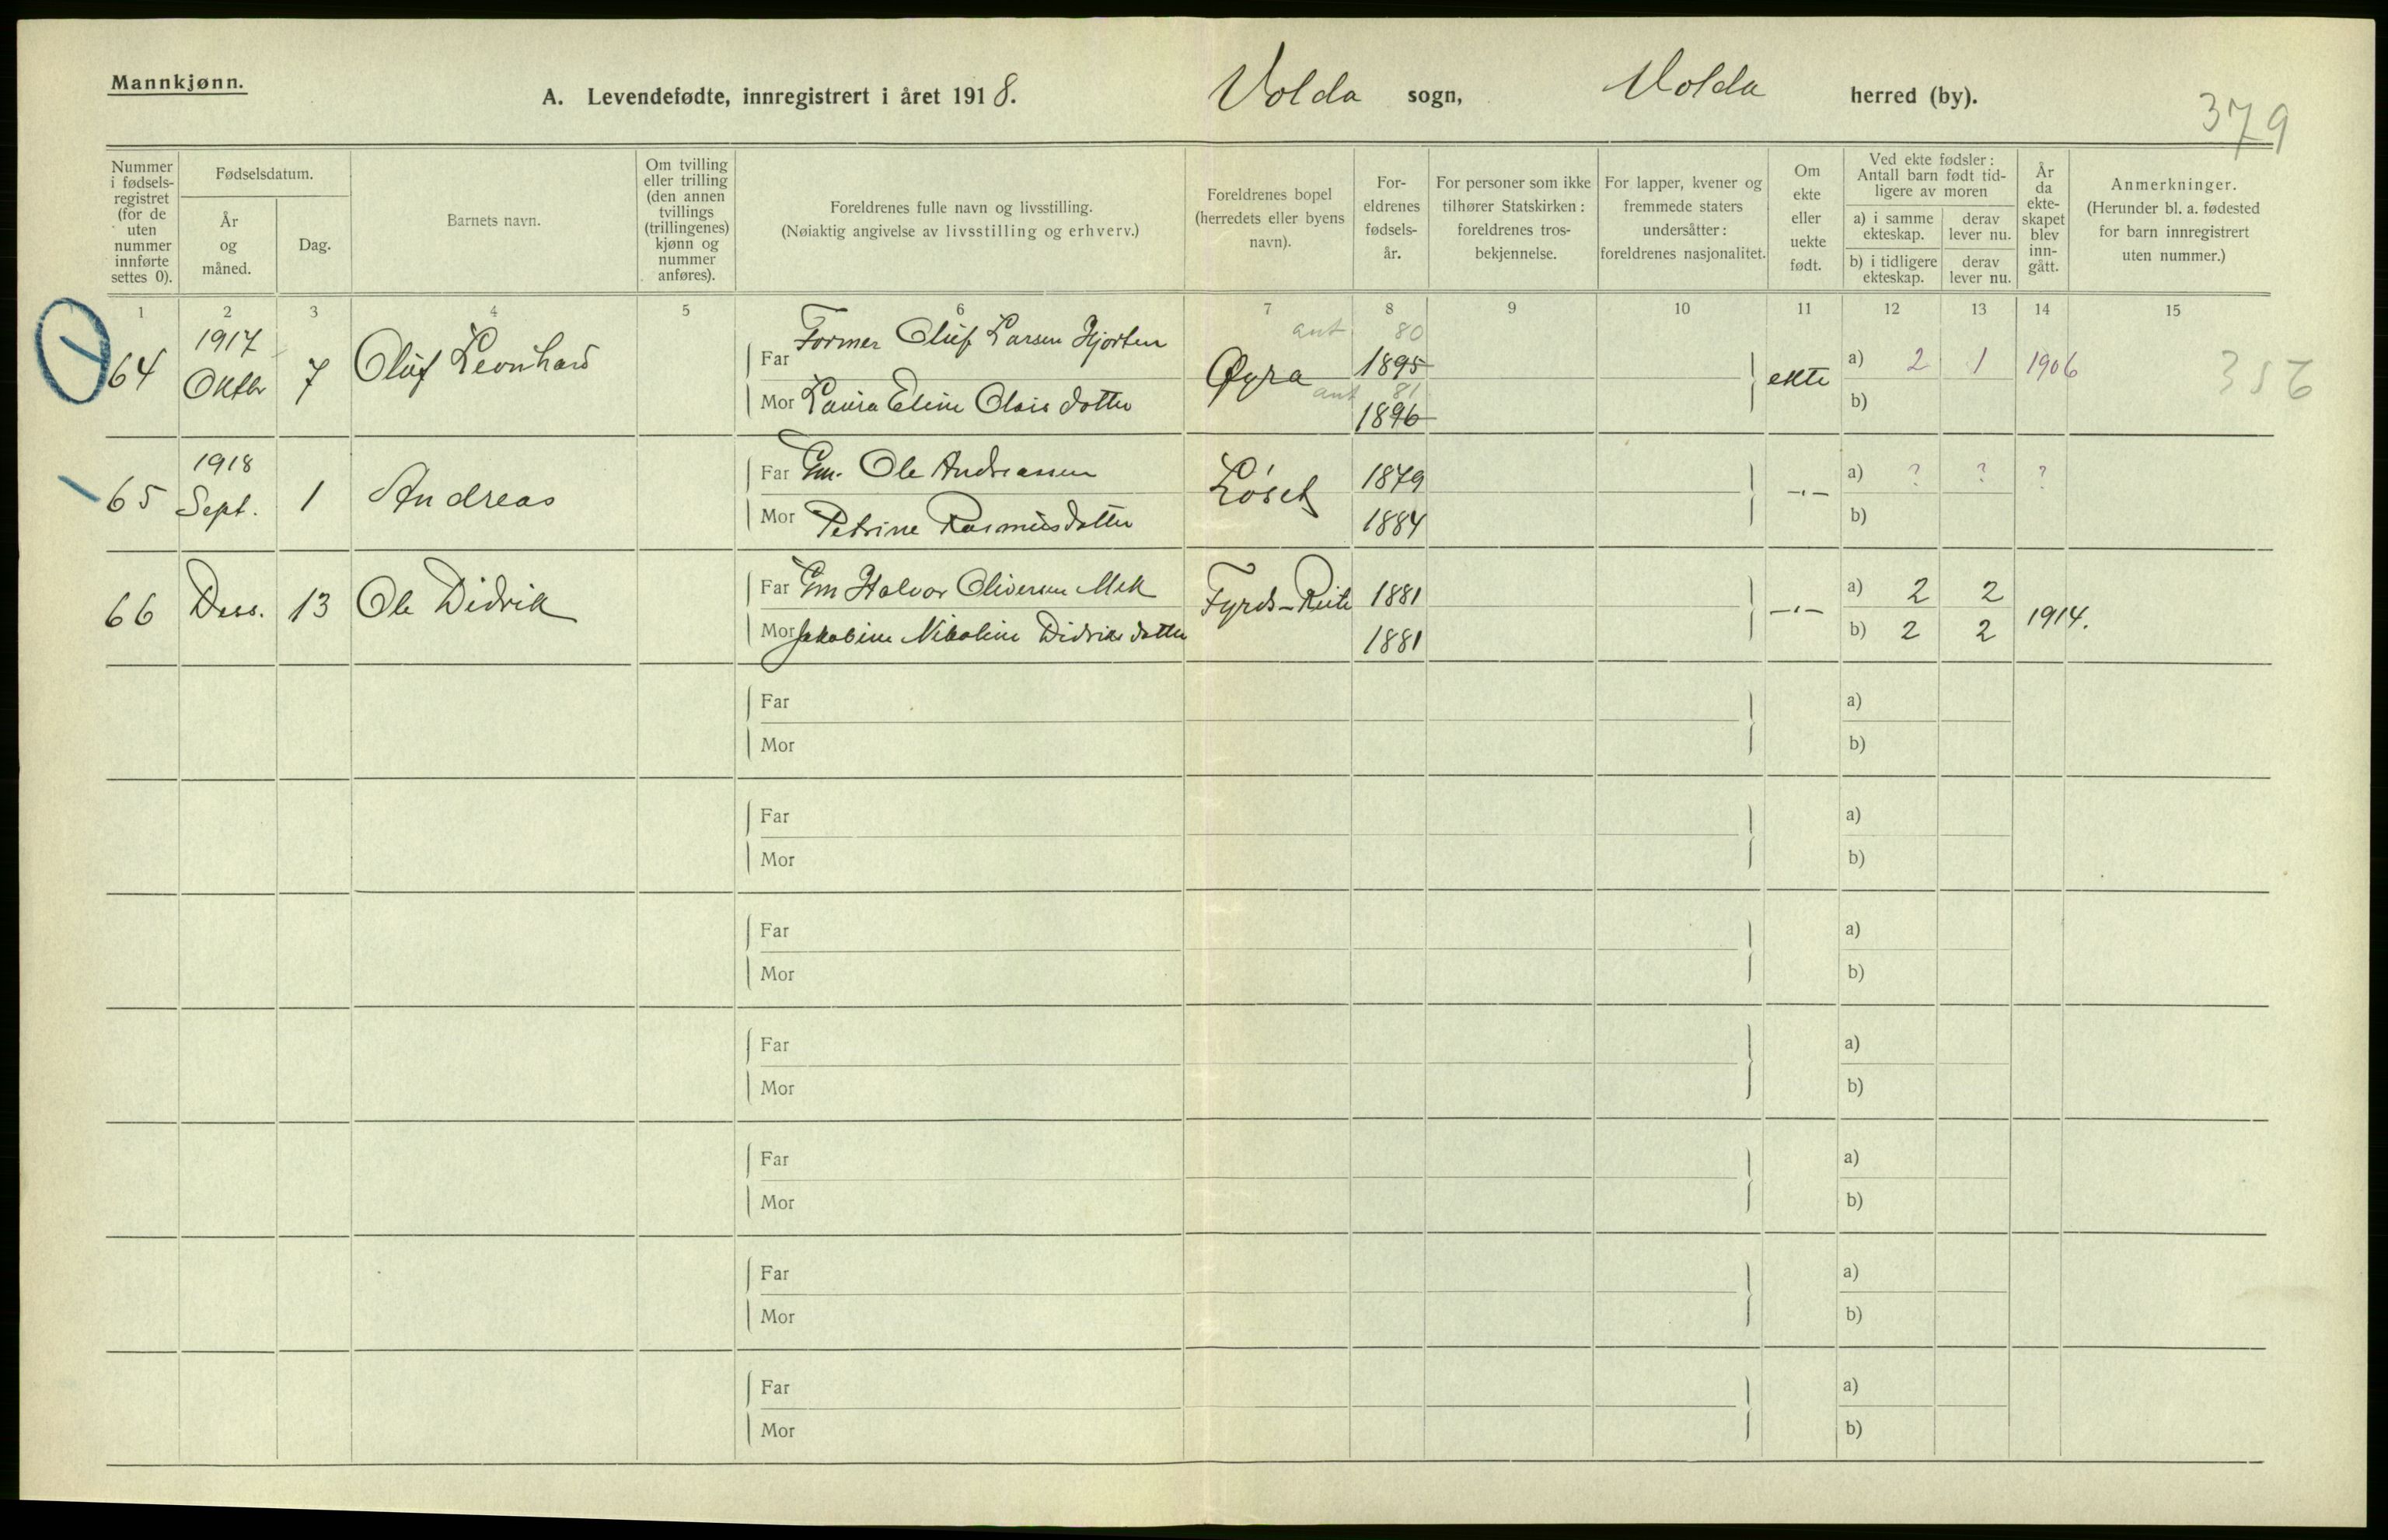 Mannkjønn.
A. Levendefødte, innregistrert i året 1918. Volda sogn, Volda herred (by).
379
Nummer i fødsels-registret (for de uten nummer innførte settes 0).
Fødselsdatum.
År og måned.
Dag.
Barnets navn.
Om tvilling eller trilling (den annen tvillings (trillingenes) kjønn og nummer anføres).
Foreldrenes fulle navn og livsstilling.
(Nøiaktig angivelse av livsstilling og erhverv.)
Foreldrenes bopel (herredets eller byens navn).
For-eldrenes fødsels-år.
For personer som ikke tilhører Statskirken: foreldrenes tros-bekjennelse.
For lapper, kvener og fremmede staters undersåtter: foreldrenes nasjonalitet.
Om ekte eller uekte født.
Ved ekte fødsler: Antall barn født tid-ligere av moren
a) i samme ekteskap.
derav lever nu.
b) i tidligere ekteskap.
derav lever nu.
År da ekte-skapet blev inn-gått.
Anmerkninger.
(Herunder bl. a. fødested for barn innregistrert uten nummer.)
1 2 3 4 5 6 7 8 9 10 11 12 13 14 15
64 1917 Oktbr 7 Oluf Leonhard
Far Former Oluf Larsen Hjorten
Mor Laura Eline Olais dotter
Øyra
ant 80
1895
ant 81
1896
ekte
a) 2 1 1906
b)
356
65 1918 Sept. 1 Andreas
Far Gm. Ole Andreassen
Mor Petrine Rasmusdotter
Løset
1879
1884
-"-
a) ? ? ?
b)
66 Dess. 13 Ole Didrik
Far Gm Halvor Oliversen Mek
Mor Jakobine Nikoline Didriks dotter
Fyrds-Reite
1881
1881
-"-
a) 2 2
b) 2 2
1914.
Far a)
Mor b)
Far a)
Mor b)
Far a)
Mor b)
Far a)
Mor b)
Far a)
Mor b)
Far a)
Mor b)
Far a)
Mor b)